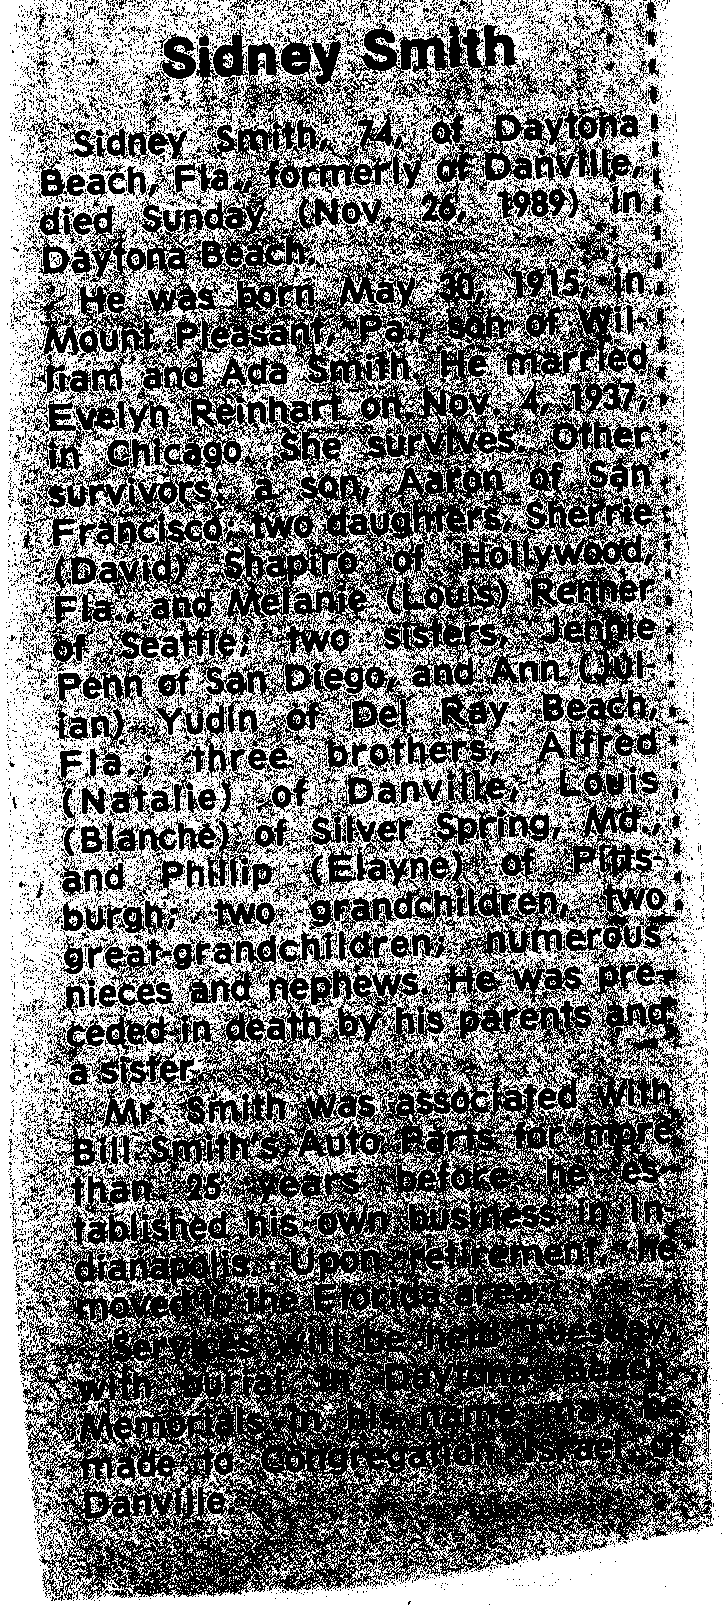 Sidney Smith
Sidney Smith, 74, of Daytona
Beach, Fla., formerly of Danville,
died Sunday (Nov. 26, 1989) in
Daytona Beach.
He was born May 30, 1915, in
Mount Pleasant, Pa., son of Wil-
liam and Ada Smith. He married
Evelyn Reinhart on Nov. 4, 1937,
in Chicago. She survives. Other
survivors: a son, Aaron of San
Francisco; two daughters, Sherrie
(David) Shapiro of Hollywood,
Fla., and Melanie (Louis) Renner
of Seattle; two sisters, Jennie
Penn of San Diego, and Ann (Jul-
ian) Yudin of Del Ray Beach,
Fla.; three brothers, Alfred
(Natalie) of Danville, Louis
(Blanche) of Silver Spring, Md.,
and Phillip (Elayne) of Pitts-
burgh; two grandchildren, two
great-grandchildren; numerous
nieces and nephews. He was pre-
ceded in death by his parents and
a sister.
Mr. Smith was associated with
Bill Smith's Auto Parts for more
than 25 years before he es-
tablished his own business in In-
dianapolis. Upon retirement, he
moved to the Florida area.
Services will be held Tuesday,
with burial in Daytona Beach.
Memorials in his name may be
made to Congregation Israel of
Danville.